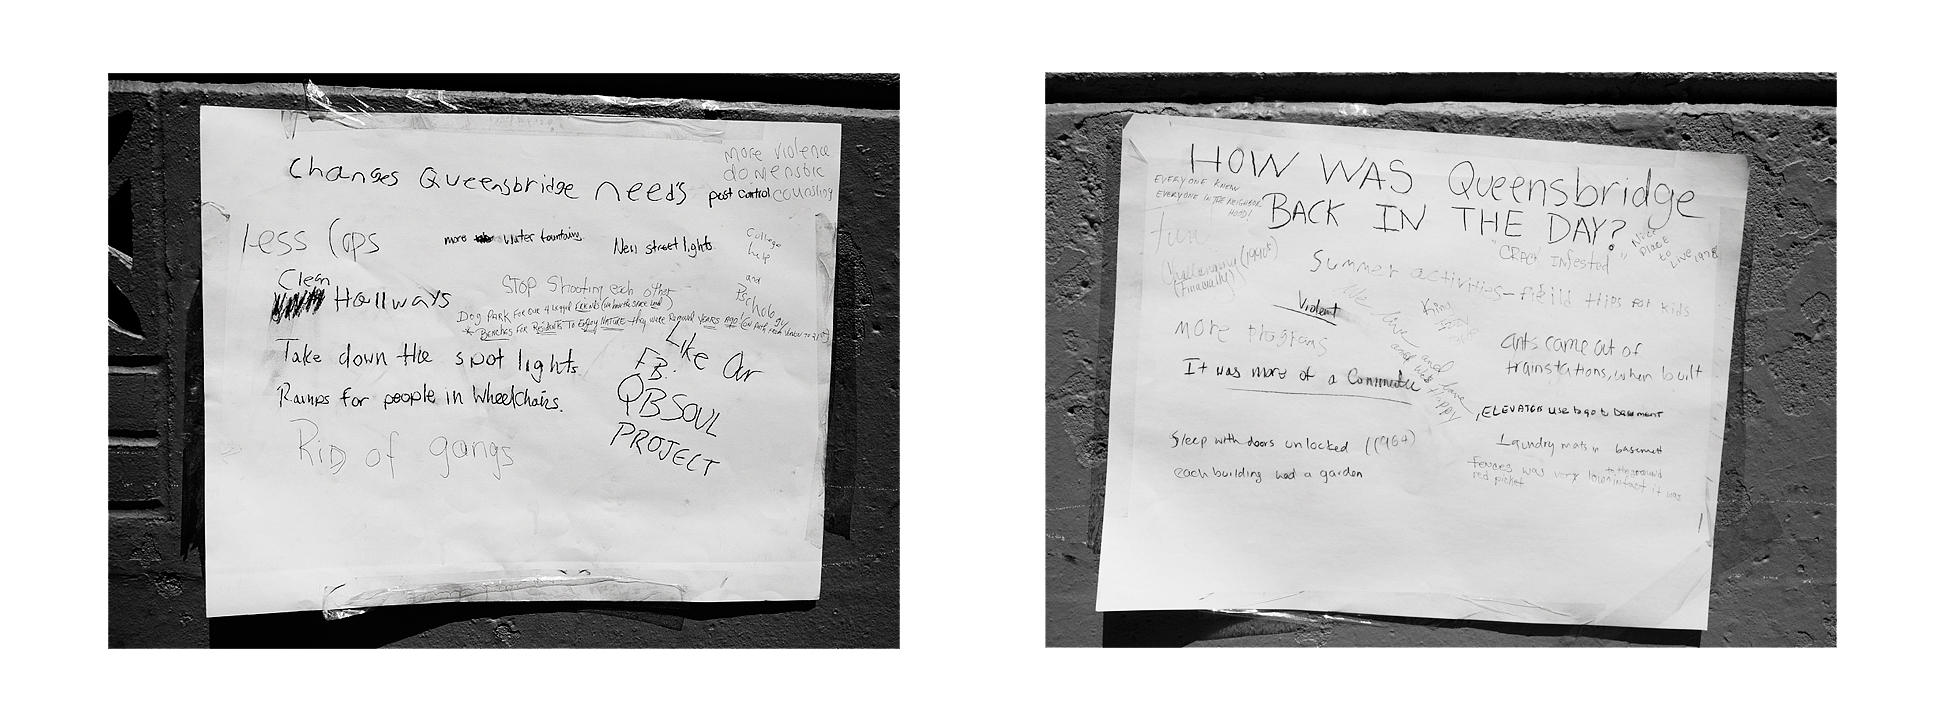 Changes Queensbridge needs
more violence
domenstic
counsling
pest control
Less Cops
more water fountains
New street lights
College
help
and
Pscholo gy
Clean
Hallways
STOP Shooting each other
Dog Park for our 4 legged Friends
* Benches for Residents To Enjoy Nature - they were Removed years ago!
Take down the spot lights
Ramps for people in Wheelchairs.
Like Our
FB.
QBSOUL
PROJECT
Rid of gangs
HOW WAS Queensbridge
BACK IN THE DAY?
EVERYONE KNEW
EVERYONE IN THE NEIGHBOR
HOOD!
fun
"CRACK INfested"
Nice
place
to
Live
Challenging
(Financially)
Summer activities - feild trips for kids
Violent
more programs
We live and
and have
was Happy
It was more of a
ants came out of
trainstations, when built
ELEVATORS use to go to basement
Sleep with doors unlocked (1964)
Laundry mats in basement
each building had a garden
Fences was very low infact it was
to the ground
red picket